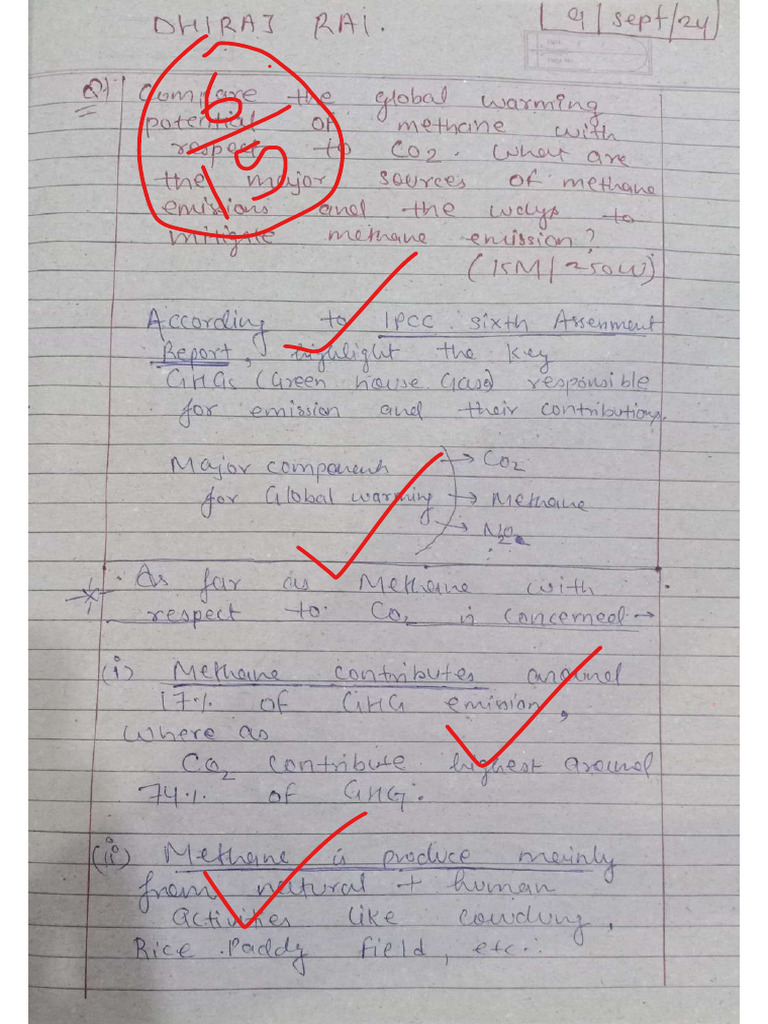 DHIRAJ RAI.
9 | Sept/24
Q1) Compare the global warming
potential of methane with
respect to CO2. What are
the major sources of methane
emissions and the ways to
mitigate methane emission?
(15M/250W)
6/15
According to IPCC sixth Assenment
Report, highlight the key
GHGs (Green house Gases) responsible
for emission and their contributions.
Major component → CO2
for Global warming → Methane
→ N2O
As far as Methane with
respect to CO2 is concerned →
(i) Methane contributes around
17% of GHG emission,
Where as
CO2 contribute highest around
74% of GHG.
(ii) Methane is produce mainly
from natural + human
activities like cowdung,
Rice Paddy field, etc.